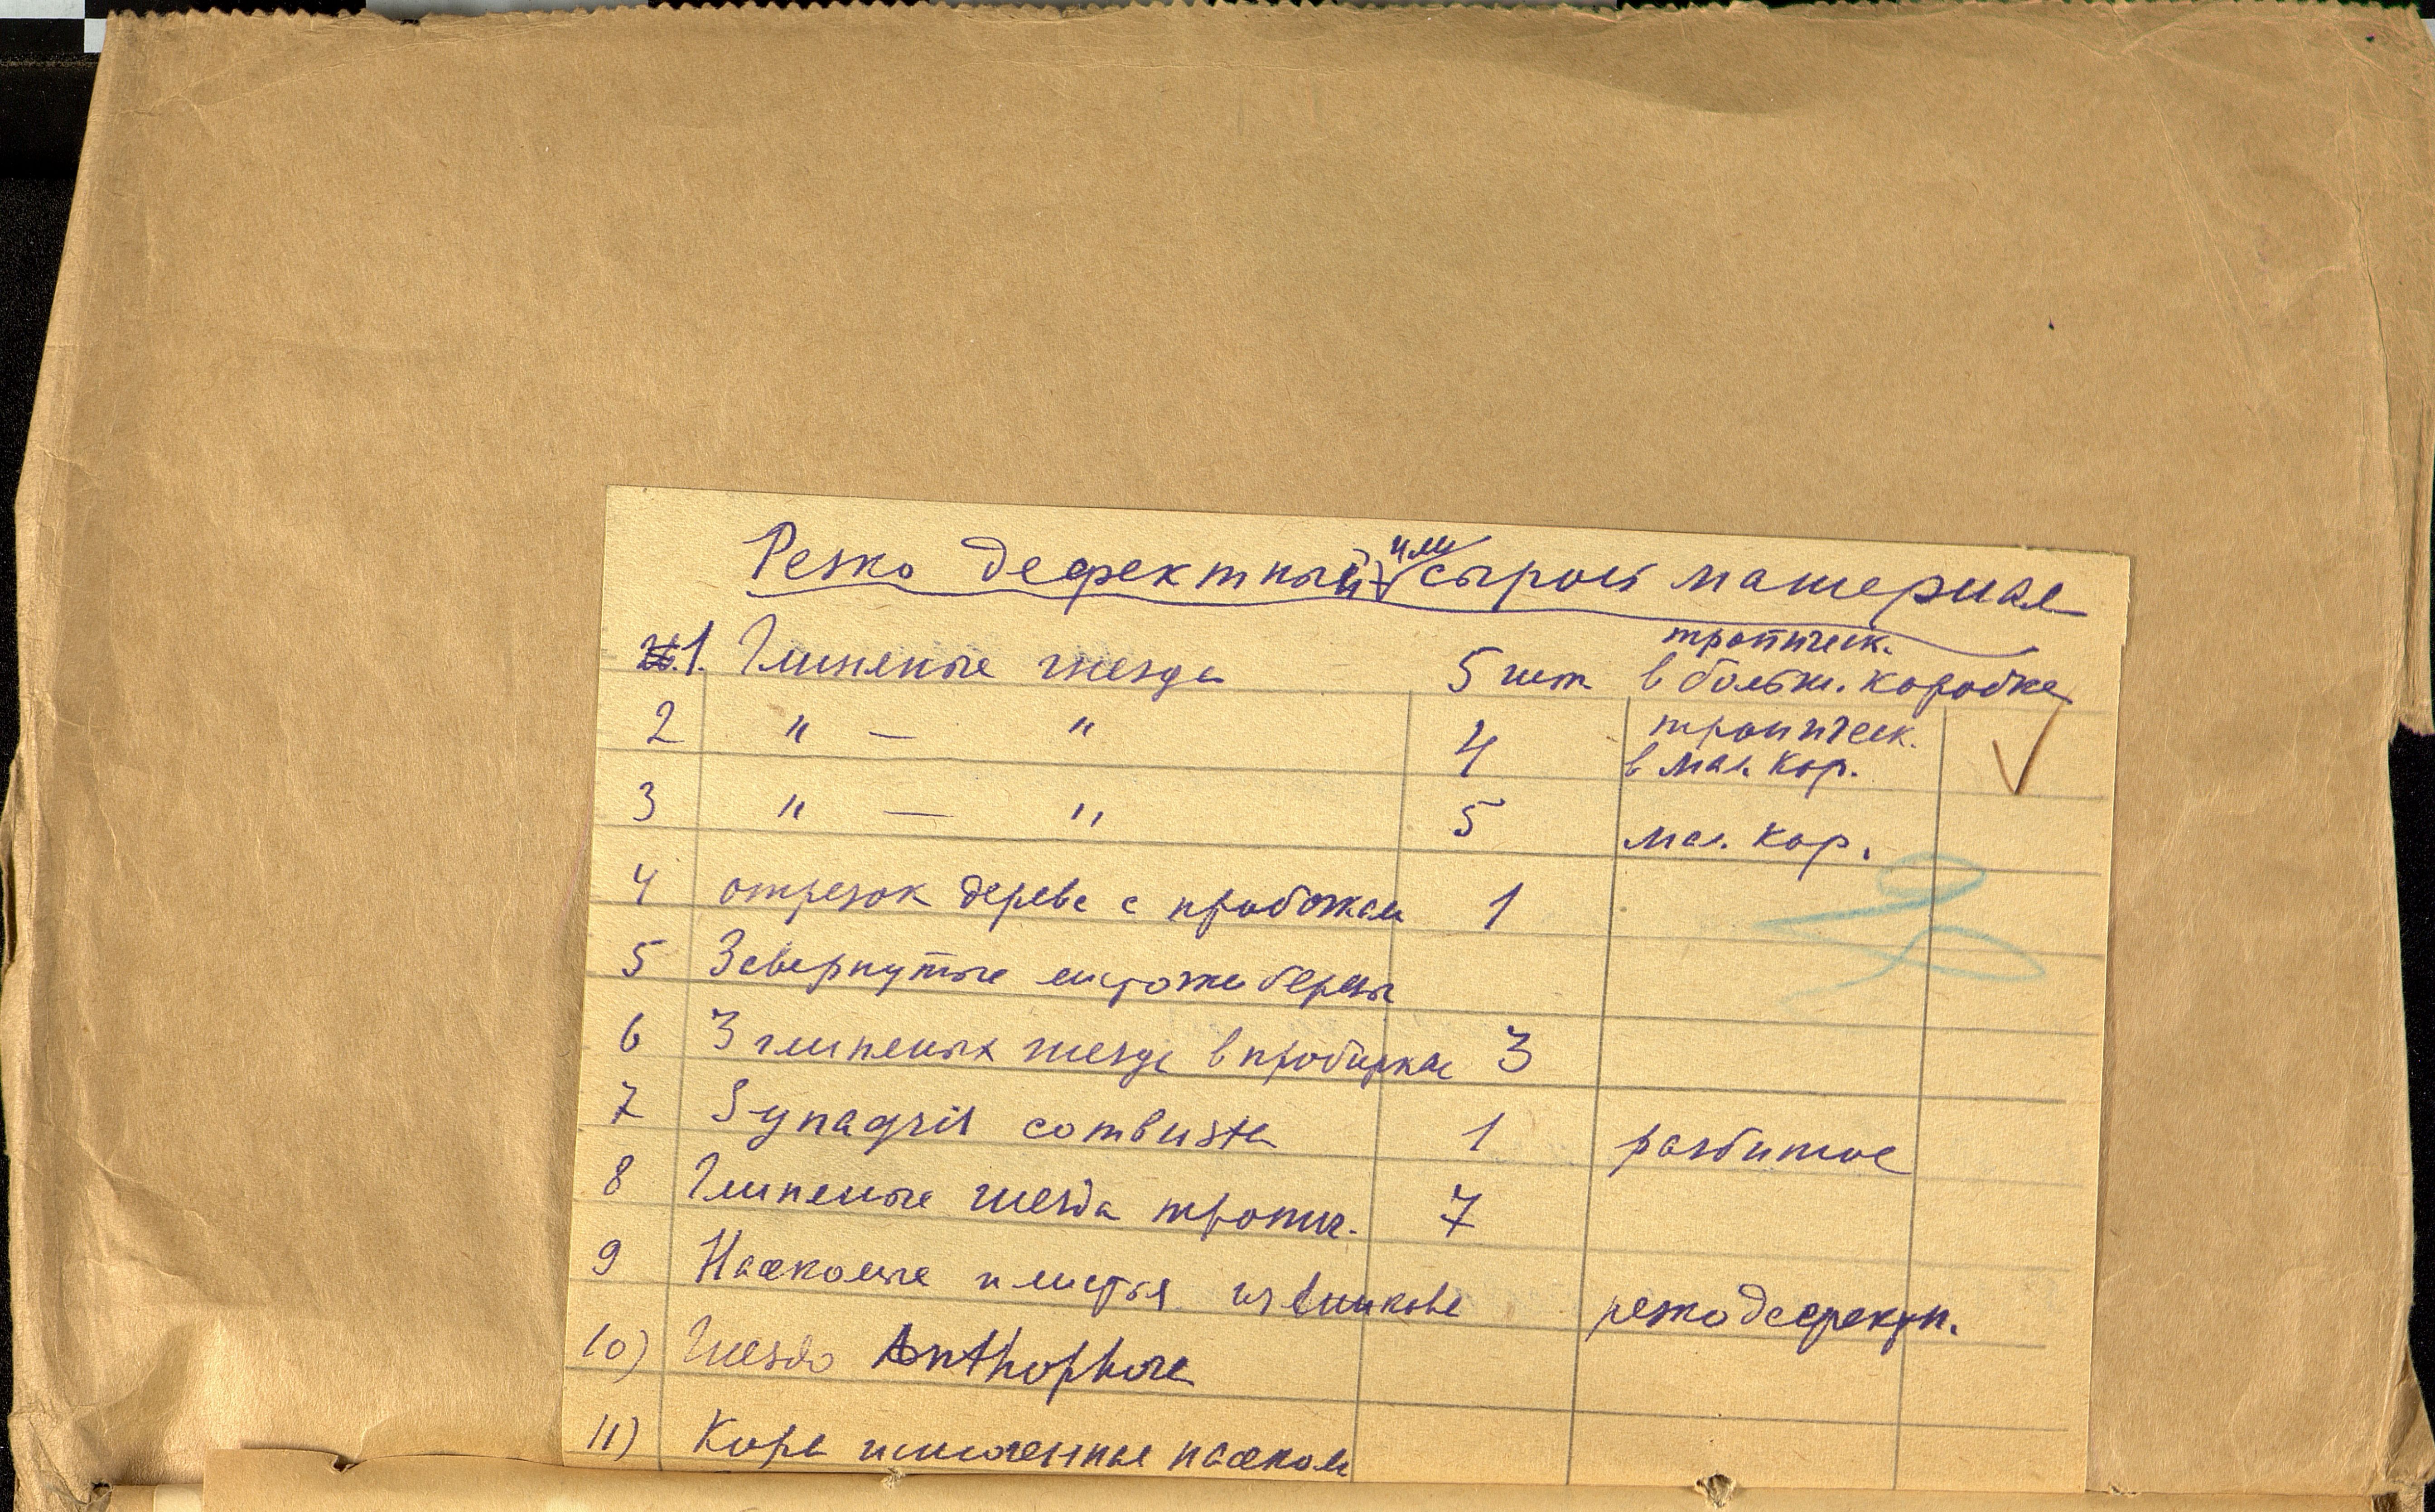 Резко дефектный или сырой материал
1. Глиняные гнезда 5 шт тропическ. в больш. коробке
2 " — " 4 тропическ. в мал. кор.
3 " — " 5 мал. кор.
4 отрезок дерева с пробоками 1
5 Завернутые листочки березы
6 3 глиняных гнезда в пробирках 3
7 Synagris combusta 1 разбитое
8 Глиняные гнезда тропич. 7 
9 Насекомые и листья резко дефектн.
10) Гнездо Anthophora
11) Кора насеком